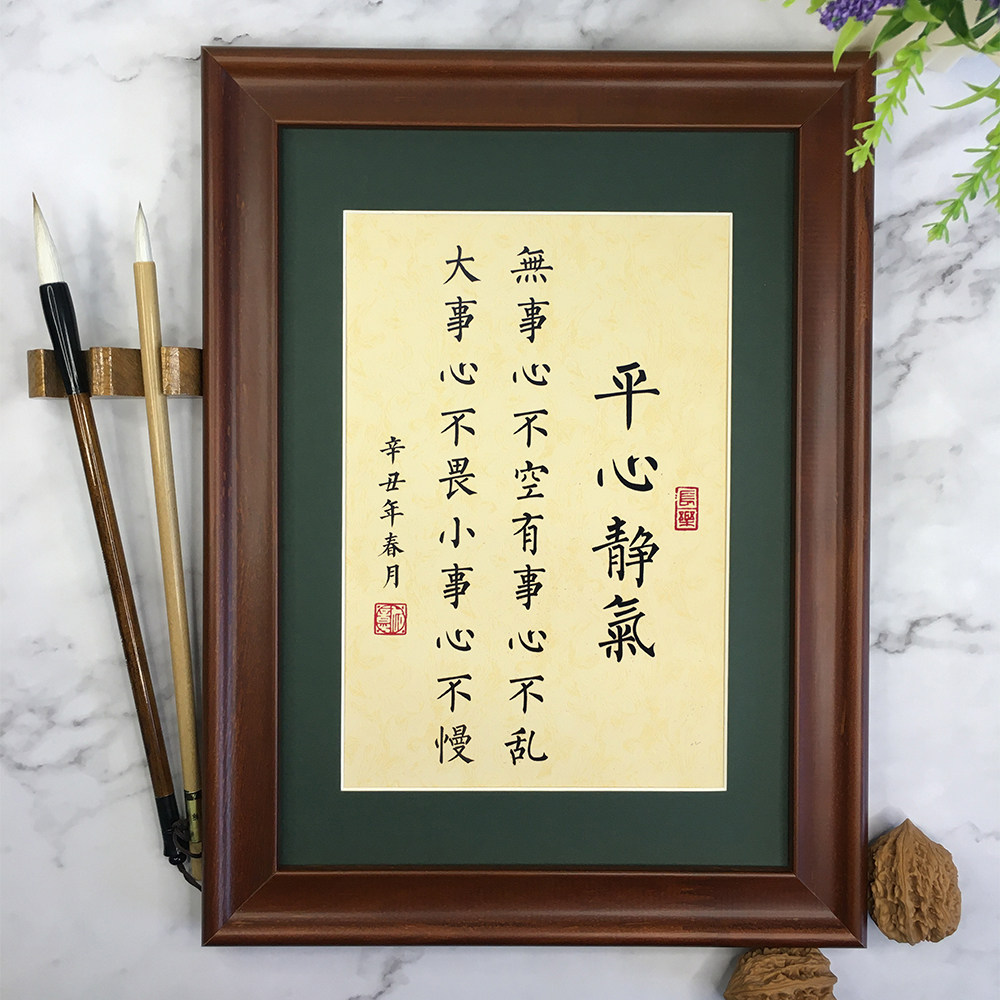 平心静氣
無事心不空有事心不乱
大事心不畏小事心不慢
辛丑年春月